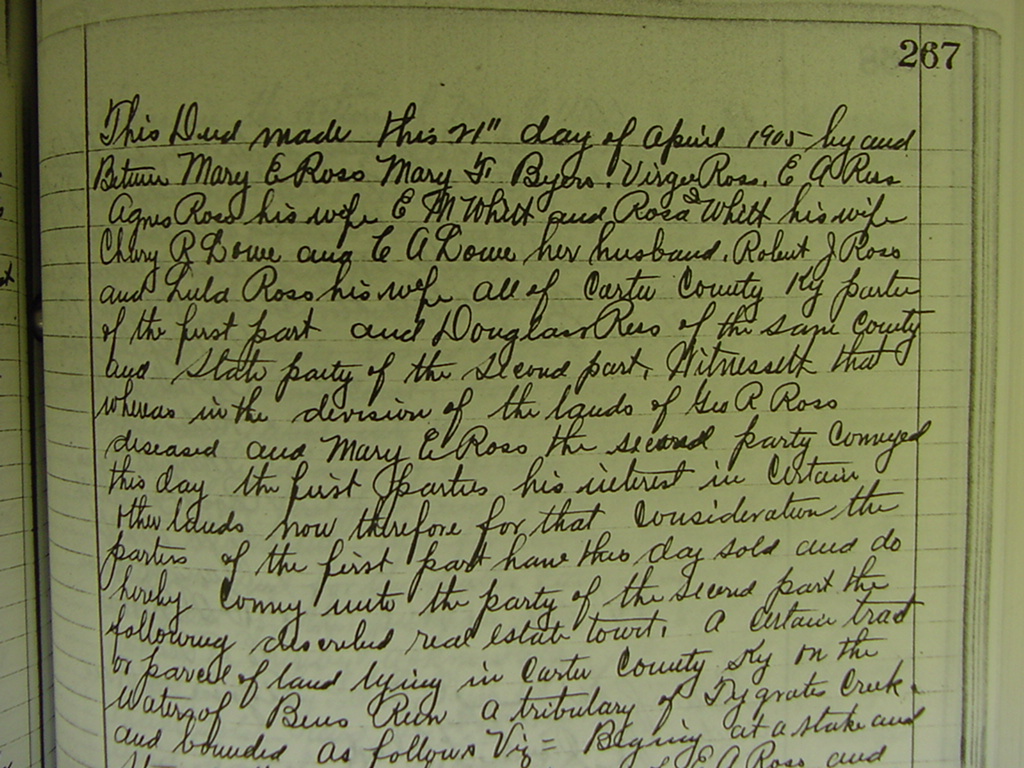 267
This Deed made this 21" day of April 1905 by and
Between Mary E Ross Mary F. Byers. Virgee Ross. E A Ross
Agnes Ross his wife E M Whitt and Rosa Whitt his wife
R Lowe and E A Lowe her husband. Robert J Ross
and Lula Ross his wife all of Carter County Ky parties
of the first part and Douglass Ross of the same County
and State party of the second part, Witnesseth that
whereas in the division of the lands of Geo R Ross
diseased and Mary E Ross the second party Conveyed
this day the first parties his interest in Certain
other lands now therefore for that Consideration the
parties of the first part have this day sold and do
hereby Convey unto the party of the second part the
following described real estate towit. A Certain tract
or parcel of land lying in Carter County Ky on the
Waters of Bens Run a tributary of Tygrats Creek.
and bounded as follows Viz = Begning at a stake and
of E A Ross and